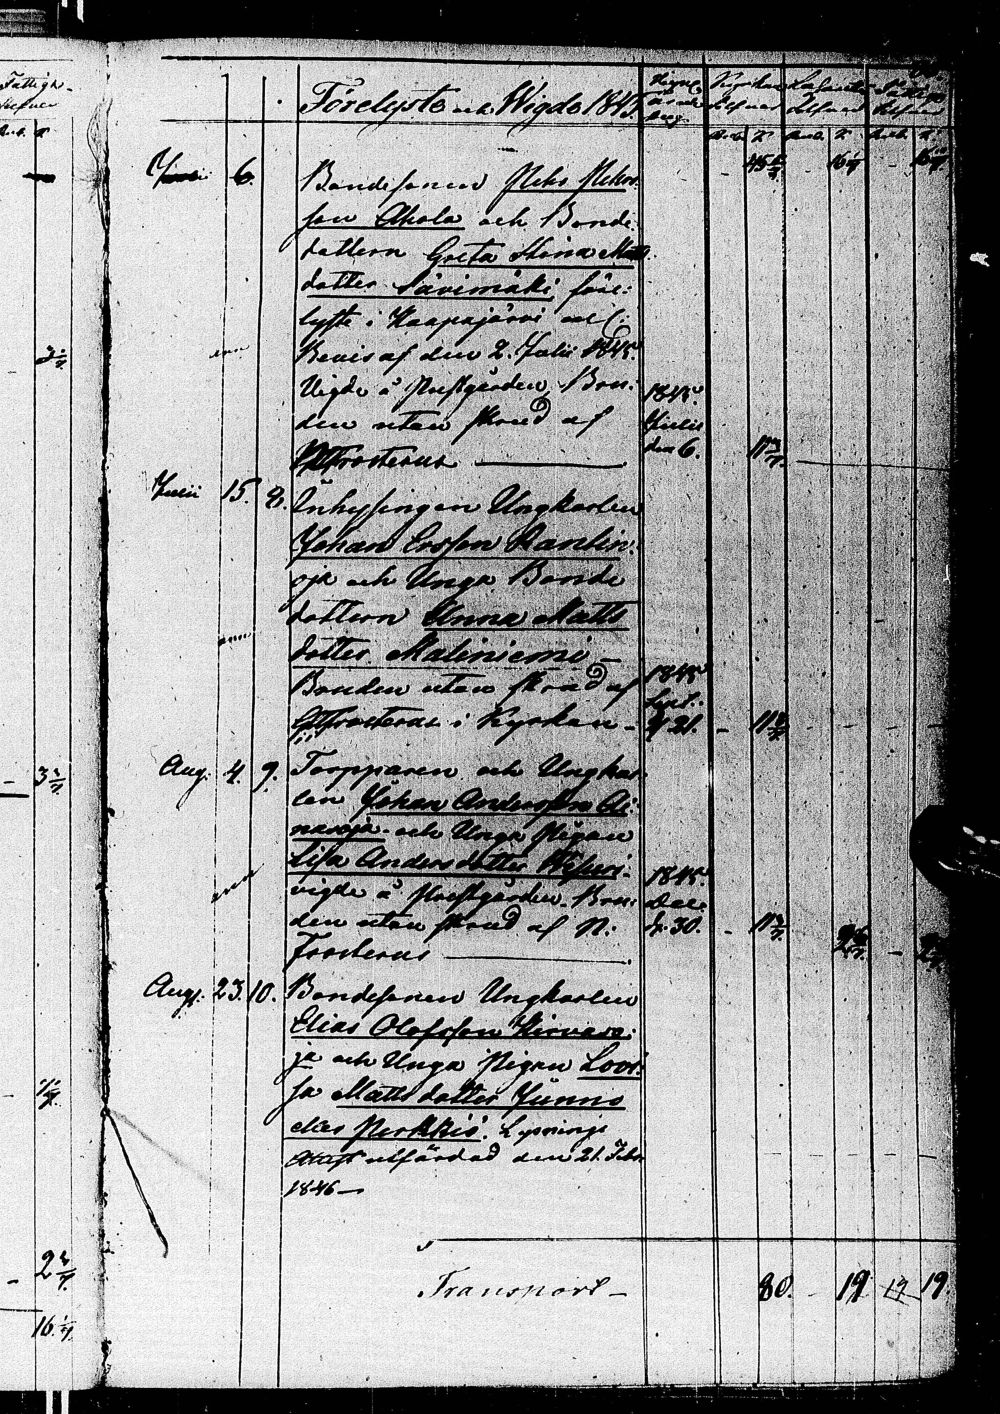 Fattigh
Förelyste och Wigde 1845.
Kyrkan
45 16 16
Julii 6.
Bondesonen Pehr Pehrs
son Ahola och Bonde
dottern Greta Stina Matts
dotter Särimäki före:
lyste i Haapajärvi
Bevis af den 2. Julii 1845.
Vigde å Prestgården, Bru:
den utan skrud af
Frosterus
1845
Julii
den 6.
11
Julii 15. 8.
Inhysingen Ungkarlen
Johan Ersson Rantin
oja och Unga Bonde
dottern Anna Matts
dotter Maliniemi
Bruden utan skrud af
Frosterus i Kyrkan
1845
Sept.
d. 21.
11
Aug. 4. 9.
Torpparen och Ungkar
len Johan Andersson Ai
naroja och Unga Pigan
Lisa Andersdotter Wisuri
vigde å Prestgården. Bru:
den utan skrud af N:
Frosterus
1845
Dec.
d. 30.
11
Aug. 23. 10.
Bondesonen Ungkarlen
Elias Olofsson Hirvaso
ja och Unga Pigan Lovi
sa Mattsdotter Junno
eller Perkkiö. Lysnings
utfärdad den 21. Febr
1846
Transport 80. 19 19 19.
3
2
16